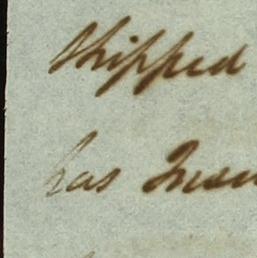 shipped
has